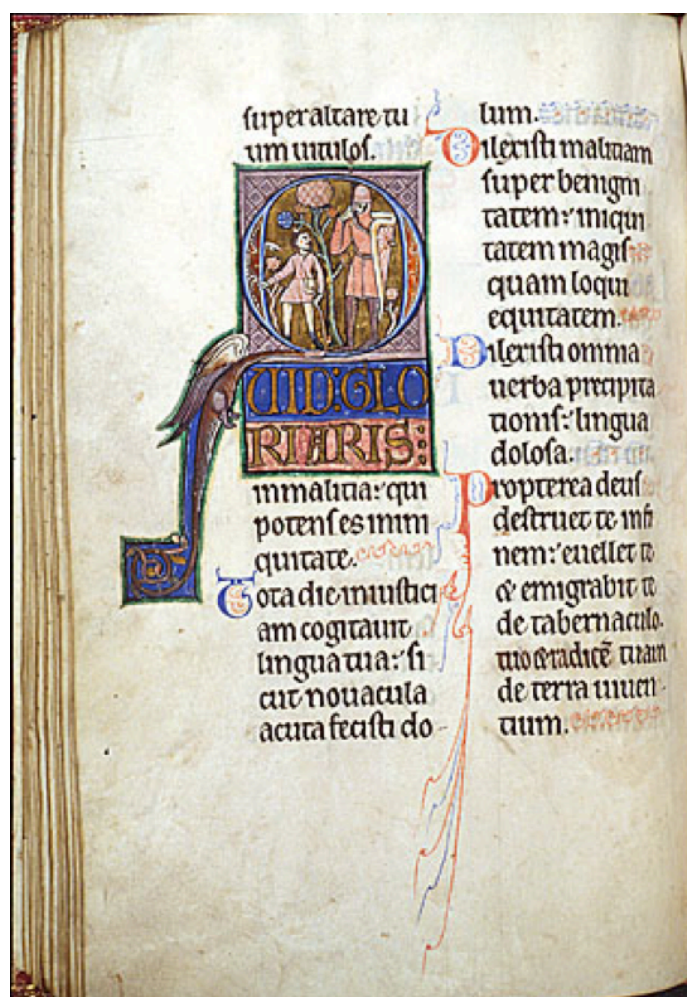 super altare tu
um uitulos.
QUID: GLO
RIARIS:
in malitia: qui
potens es in ini
quitate.
Tota die iniustici
am cogitauit
lingua tua: si
cut nouacula
acuta fecisti do-
lum.
Dilexisti malitiam
super benigni
tatem: iniqui
tatem magis
quam loqui
equitatem.
Dilexisti omnia
uerba precipita
tionis: lingua
dolosa.
Propterea deus
destruet te in fi
nem: euellet te
& emigrabit te
de tabernaculo
tuo & radicē tuam
de terra uiuen-
tium.